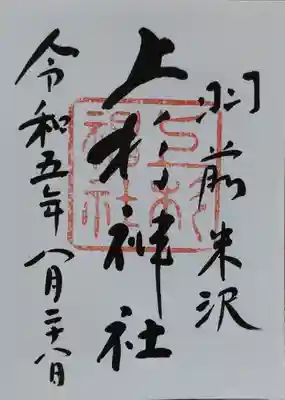 羽前米沢
上杉神社
上杉神社
令和五年八月二十八日